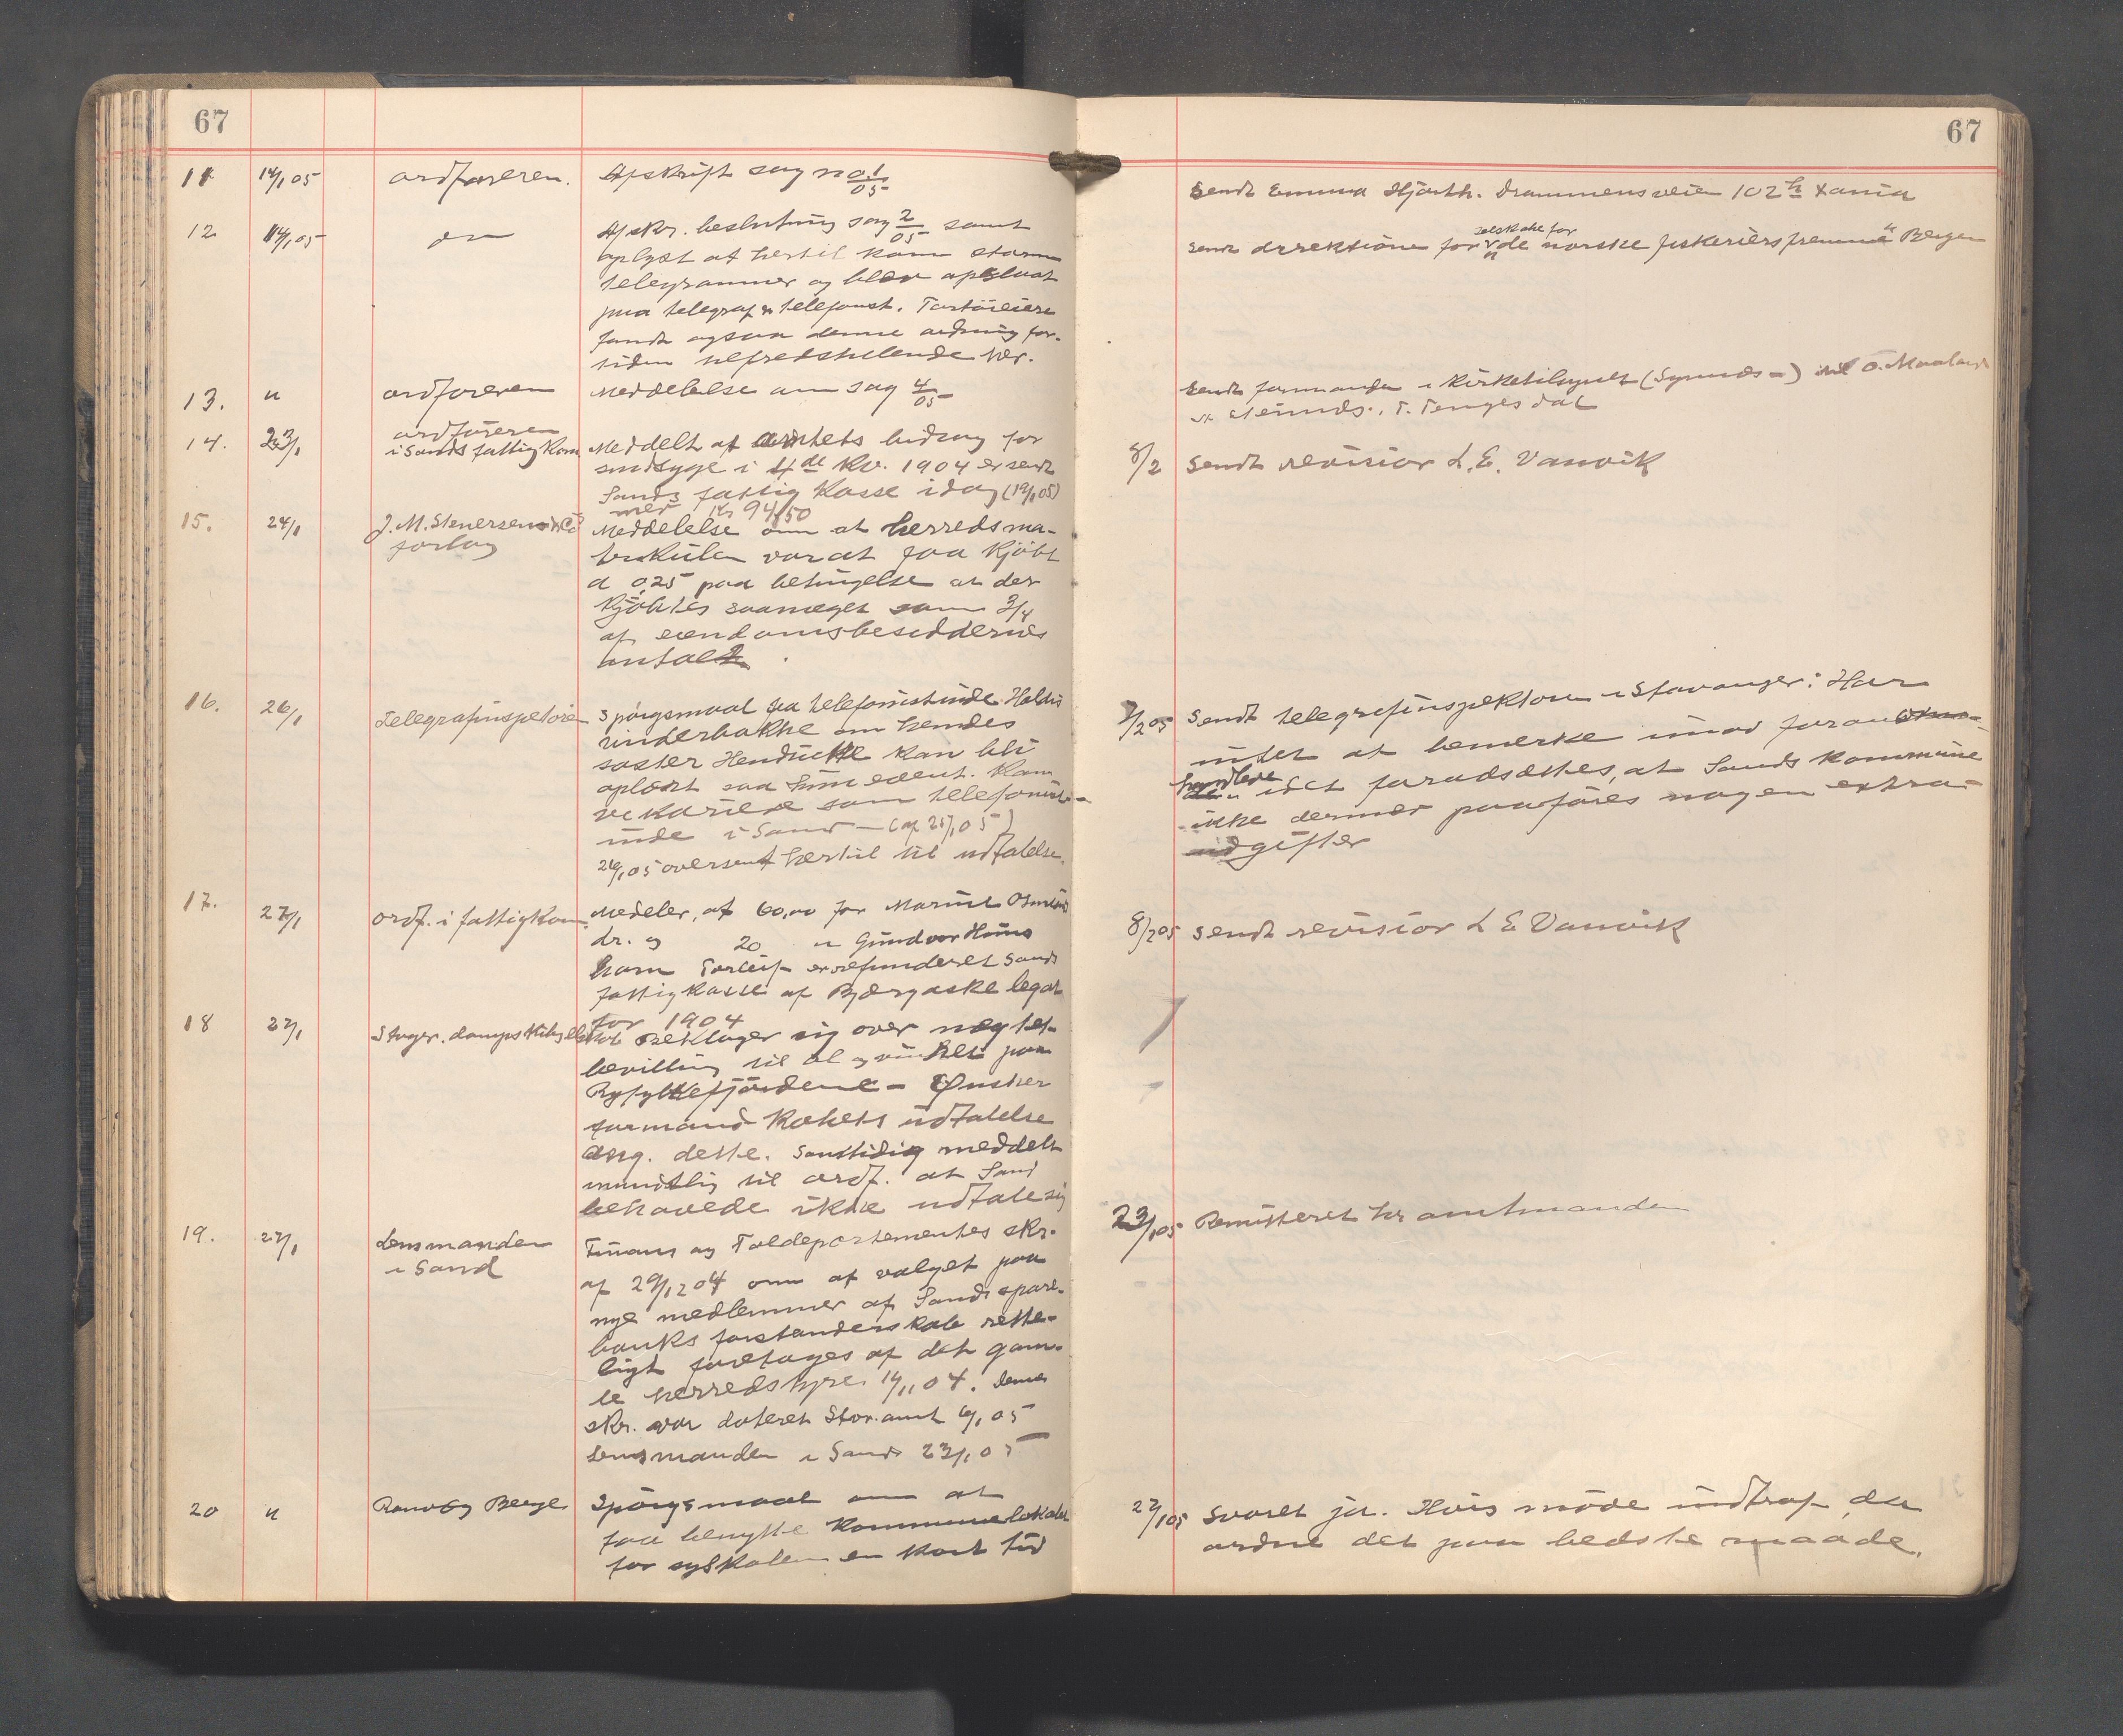 67
11 14/1 05 ordføreren. Afskrift sag no 1/05
12 14/1 05 do Afskr. beslutning sag 2/05 samt
oplyst at hertil kom storm
telegrammer og blev opslaat
paa telegraf & telefonst.
fandt ogsaa denne ordning for-
tiden tilfredstillende her.
13. " ordføreren Meddelelse om sag 4/05
14. 23/1 ordføreren
i Sands fattigkom Meddelt at amtets bidrag for
sindsyge i 4de kv. 1904 er sendt
Sands fattigkasse idag (19/1 05)
med Kr 94,50
15. 24/1 J. M. Stenersen & Co
forlag
Meddelelse om at herredsma-
trikulen var at faa kjøbt
a 0,25 paa betingelse at der
kjøbtes saameget som 3/4
af eiendomsbesiddernes
antal
16. 26/1 Telegrafinspektøren Spørgsmaal fra telefonistinde
om hendes
søster kan bli
oplært saa hun event. kan
vikariere som telefonist-
inde i Sand
26/1 05 oversendt hertil til udtalelse.
17. 27/1 ordf. i fattigkom. Meddeler, at 60,00 for Marius
dr. og 20 " Gundvor
barn er refunderet Sands
fattigkasse af legat
for 1904
18 27/1 Stavger. dampskibsselskab beklager sig over nægtet
bevilling til øl og vin paa
Ryfylkefjordene - Ønsker
formandskabets udtalelse
ang. dette. Samtidig meddelt
mundtlig til ordf. at Sand
behøvede ikke udtale sig
19. 27/1 Lensmanden
i Sand
Finans og Tolddepartementets skr.
af 29/12 04 om at valget paa
nye medlemmer af Sands spare-
banks forstanderskab rette-
ligt foretages af det gam-
le herredstyre 14/11 04. Denne
skr. var dateret Stav. amt 6/1 05
Lensmanden i Sand 23/1 05
20 " Spørgsmaal om at
faa benytte kommunelokalet
for syskolen en kort tid
67
Sendt Emma Hjorth. Drammensveien 102 h Xania
selskabet for
Sendt direktionen for de norske fiskeriers fremme Bergen
Sendt formanden i kirketilsynet
T. Tengesdal
8/2 Sendt revisior L. E. Vanvik
7/2 05 Sendt telegrafinspektøren i Stavanger: Har
intet at bemerke imod foran
handlede idet forudsættes, at Sands kommune
ikke dermed paaføres nogen extra
udgifter
8/2 05 Sendt revisior L E Vanvik
23/1 05 Remitteret hr amtmanden
27/1 05 Svaret ja. Hvis møde indtraf da
ordne det paa bedste maade.